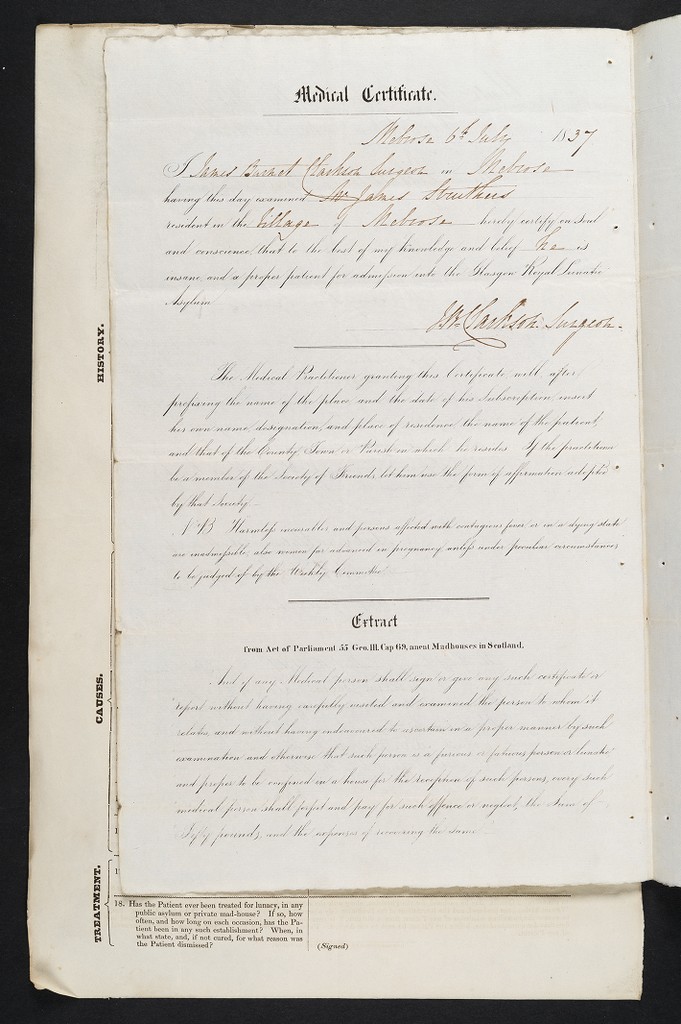 Medical Certificate.
Melrose 6th July 1837
I James Burnet Clarkson Surgeon in Melrose
having this day examined Mr James Struthers
resident in the Village of Melrose hereby certify on Soul
and conscience, that to the best of my knowledge and belief he is
insane, and a proper patient for admission into the Glasgow Royal Lunatic
Asylum
Clarkson Surgeon.
The Medical Practitioner granting this Certificate will, after
prefixing the name of the place, and the date of his Subscription, insert
his own name, designation, and place of residence, the name of the patient,
and that of the County Town or Parish in which he resides. If the practitioner
be a member of the Society of Friends, let him use the form of affirmation adopted
by that Society.
N.B. Harmless incurables and persons affected with contagious fever or in a dying state
are inadmissible, also women far advanced in pregnancy unless under peculiar circumstances
to be judged of by the Weekly Committee
Extract
from Act of Parliament 55 Geo. III. Cap 69, anent Madhouses in Scotland.
And if any Medical person shall sign or give any such certificate or
report without having carefully visited and examined the person to whom it
relates, and without having endeavoured to ascertain in a proper manner by such
examination and otherwise that such person is a furious or fatuous person or lunatic
and proper to be confined in a house for the reception of such persons, every such
medical person shall forfeit and pay for such offence or neglect, the Sum of
Fifty pounds, and the expenses of recovering the same
HISTORY.
CAUSES.
TREATMENT.
18. Has the Patient ever been treated for lunacy, in any
public asylum or private mad-house? If so, how
often, and how long on each occasion, has the Pa-
tient been in any such establishment? When, in
what state, and, if not cured, for what reason was
the Patient dismissed?
(Signed)